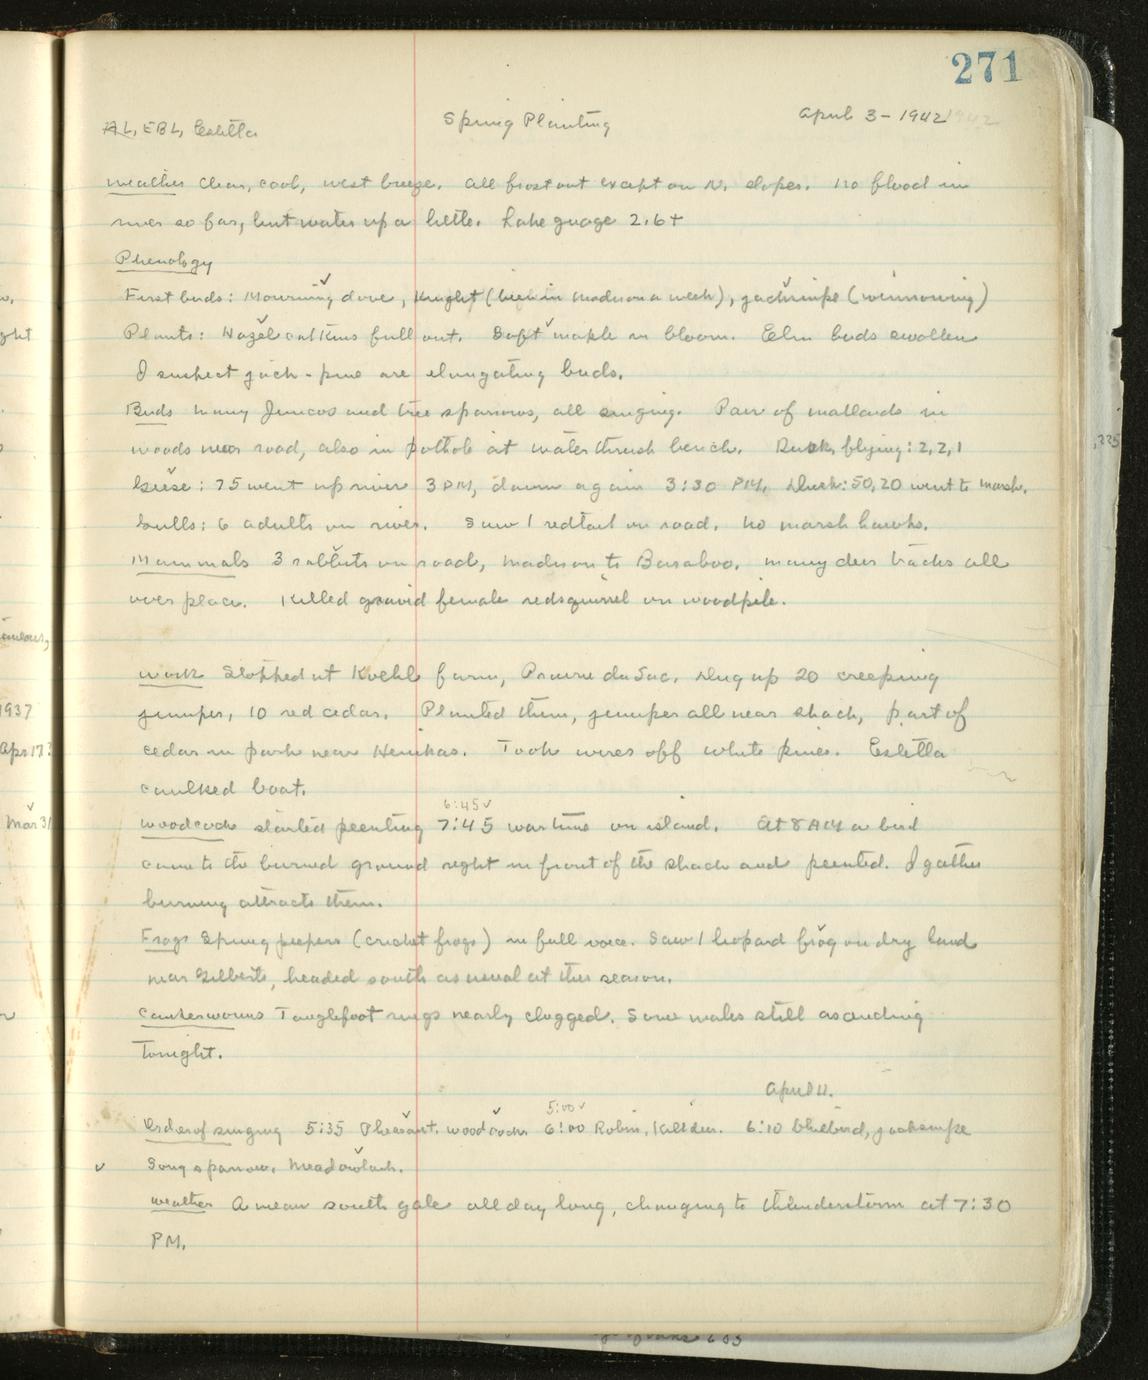 271
AL, EBL, Estella
Spring Planting
April 3 - 1942 1942
weather Clear, cool, west breeze. All frost out except on N. slopes. No flood in
river so far, but water up a little. Lake guage 2.6+
Phenology
First birds: Mourning dove, (been in Madison a week), jacksnipe (winnowing)
Plants: Hazel catkins full out. Soft maple in bloom. Elm buds swollen
I suspect jack-pine are elongating buds.
Birds Many Juncos and tree sparrows, all singing. Pair of mallards in
woods near road, also in pothole at water thrush bench. Ducks flying: 2, 2, 1
Geese: 75 went up river 3 PM, down again 3:30 PM. Dusk: 50, 20 went to marsh.
Gulls: 6 adults on river. Saw 1 redtail on road. No marsh hawks.
Mammals 3 rabbits on road, Madison to Baraboo. Many deer tracks all
over place. Killed gravid female red squirrel on woodpile.
Work Stopped at Koehl farm, Prairie du Sac. Dug up 20 creeping
juniper, 10 red cedar. Planted them, juniper all near shack, part of
cedar in park near Henikas. Took wires off white pines. Estella
caulked boat.
6:45
Woodcock started peenting 7:45 war time on island. At 8 AM a bird
came to the burned ground right in front of the shack and peented. I gather
burning attracts them.
Frogs Spring peepers (cricket frogs) in full voice. Saw 1 leopard frog on dry land
near Gilberts, headed south as usual at this season.
Cankerworms Tanglefoot rings nearly clogged. Some males still ascending
Tonight.
April 11.
5:00
Order of singing 5:35 Pheasant, woodcock 6:00 Robin, Killdeer. 6:10 bluebird, jacksnipe
Song sparrow. Meadowlark.
weather A mean south gale all day long, changing to thunderstorm at 7:30
PM.
ght
1937
Apr 17?
Mar 31